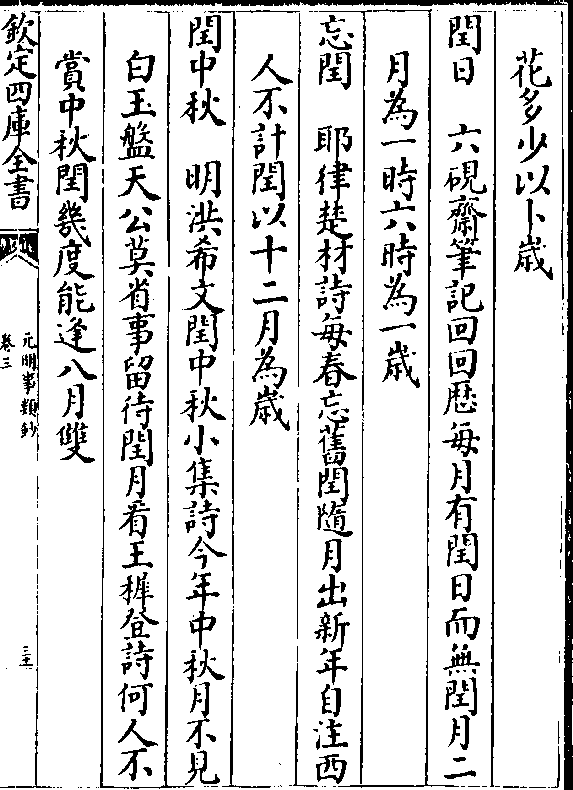 花多少以卜歳
閏日　六硯齋筆記回回歴每月有閏日而無閏月二
月為一時六時為一歳
忘閏　耶律楚材詩每春忘舊閏隨月出新年自注西
人不計閏以十二月為歳
閏中秋　明洪希文閏中秋小集詩今年中秋月不見
白玉盤天公莫省事留待閏月看王穉登詩何人不
賞中秋閏幾度能逢八月雙
欽定四庫全書
元明事類鈔
卷三